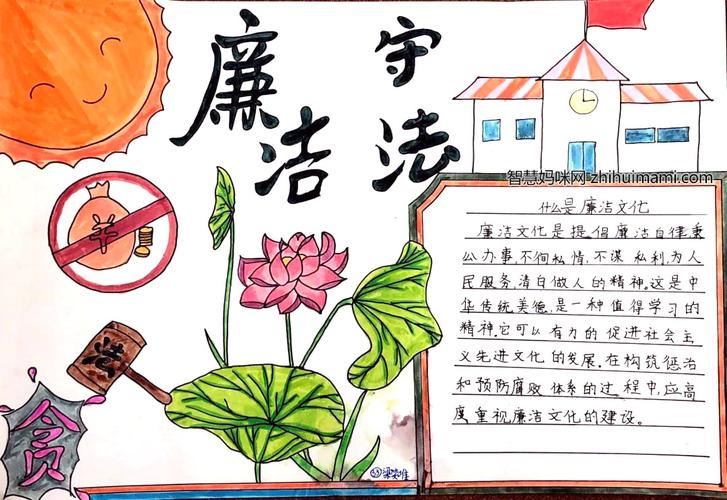 廉洁
守法
智慧妈咪网 zhihuimami.com
什么是廉洁文化
廉洁文化是提倡廉洁自律秉
公办事,不徇私情,不谋私利,为人
民服务,清白做人的精神。这是中
华传统美德,是一种值得学习的
精神。它可以有力的促进社会主
义先进文化的发展。在构筑惩治
和预防腐败体系的过程中,应高
度重视廉洁文化的建设。
¥
法
贪